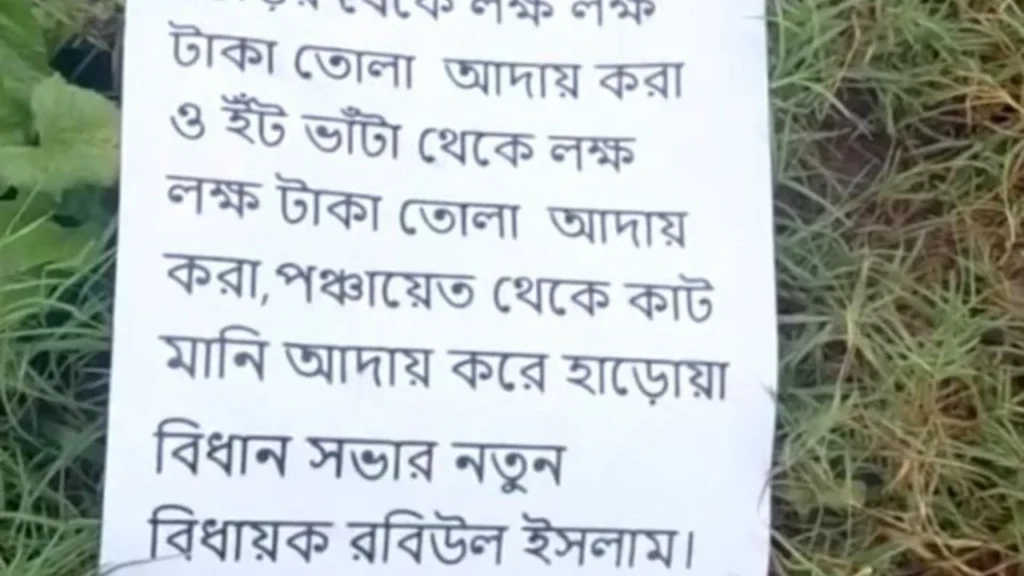 থেকে লক্ষ লক্ষ
টাকা তোলা আদায় করা
ও ইঁট ভাঁটা থেকে লক্ষ
লক্ষ টাকা তোলা আদায়
করা,পঞ্চায়েত থেকে কাট
মানি আদায় করে হাড়োয়া
বিধান সভার নতুন
বিধায়ক রবিউল ইসলাম।